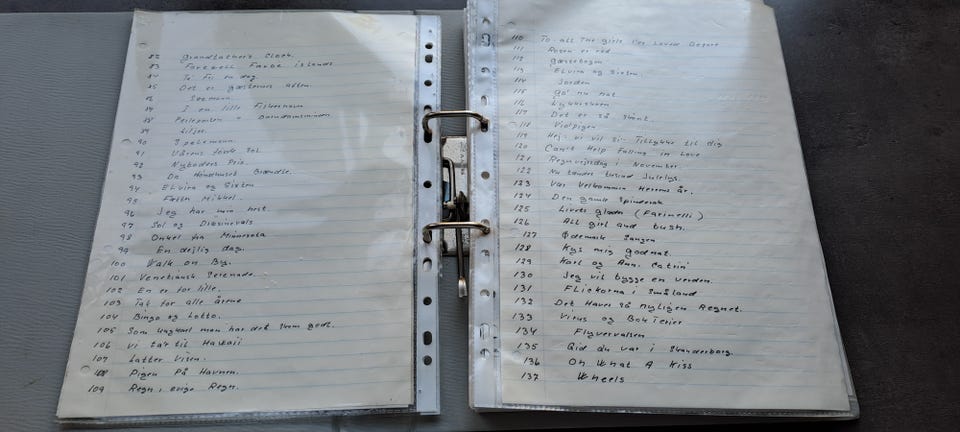 82 Grandfathers Clock.
83 Farewell Farøe islands
84 To Fri en dag.
85 Det er gæsternes aften.
86 Sømand.
87 I en lille Fiskerhavn
88 Barndomsminder
89 Liljer.
90 Spelemann.
91 Vårens første Sol
92 Nyboders Pris.
93 Da Hønsehuset Brændte.
94 Elvira og Sixten
95 Fætter Mikkel.
96 Jeg har min hest
97 Sol og Diesinevals
98 Onkel fra Minnesota
99 En dejlig dag.
100 Walk on By.
101 Venetiansk Serenade.
102 En er for lille.
103 Tak for alle årene
104 Bingo og Lotto.
105 Som ungkarl man har det skam godt.
106 Vi ta'r til Hawaii
107 Latter Visen.
108 Pigen På Havnen.
109 Regn i evige Regn.
110 To all The girls I've Loved
111 Rosen er rød
112 gæstebogen
113 ELvira og Sixten.
114 Jorden
115 Go' nu nat
116 Lykkeskoen
117 Det er så skønt.
118 Violpigen
119 Hej. Vi vil si- Tillykke til dig
120 Can't Help Falling in Love
121 Regnvejrsdag i November
122 Nu tændes tusind Julelys.
123 Vær Velkommen Herrens år.
124 Den gamle Spinderok
125 Livets glæder (Farinelli)
126 All girl and bush.
127 Ødemark Sangen
128 Kys mig godnat.
129 Karl og Ann. Catrin
130 Jeg vil bygge en verden.
131 FLickorna i Småland
132 Det Haver så nyligen Regnet.
133 Virus og BakTerier
134 Flyvervalsen
135 Gid du var i Skanderborg.
136 Oh What A Kiss
137 Wheels